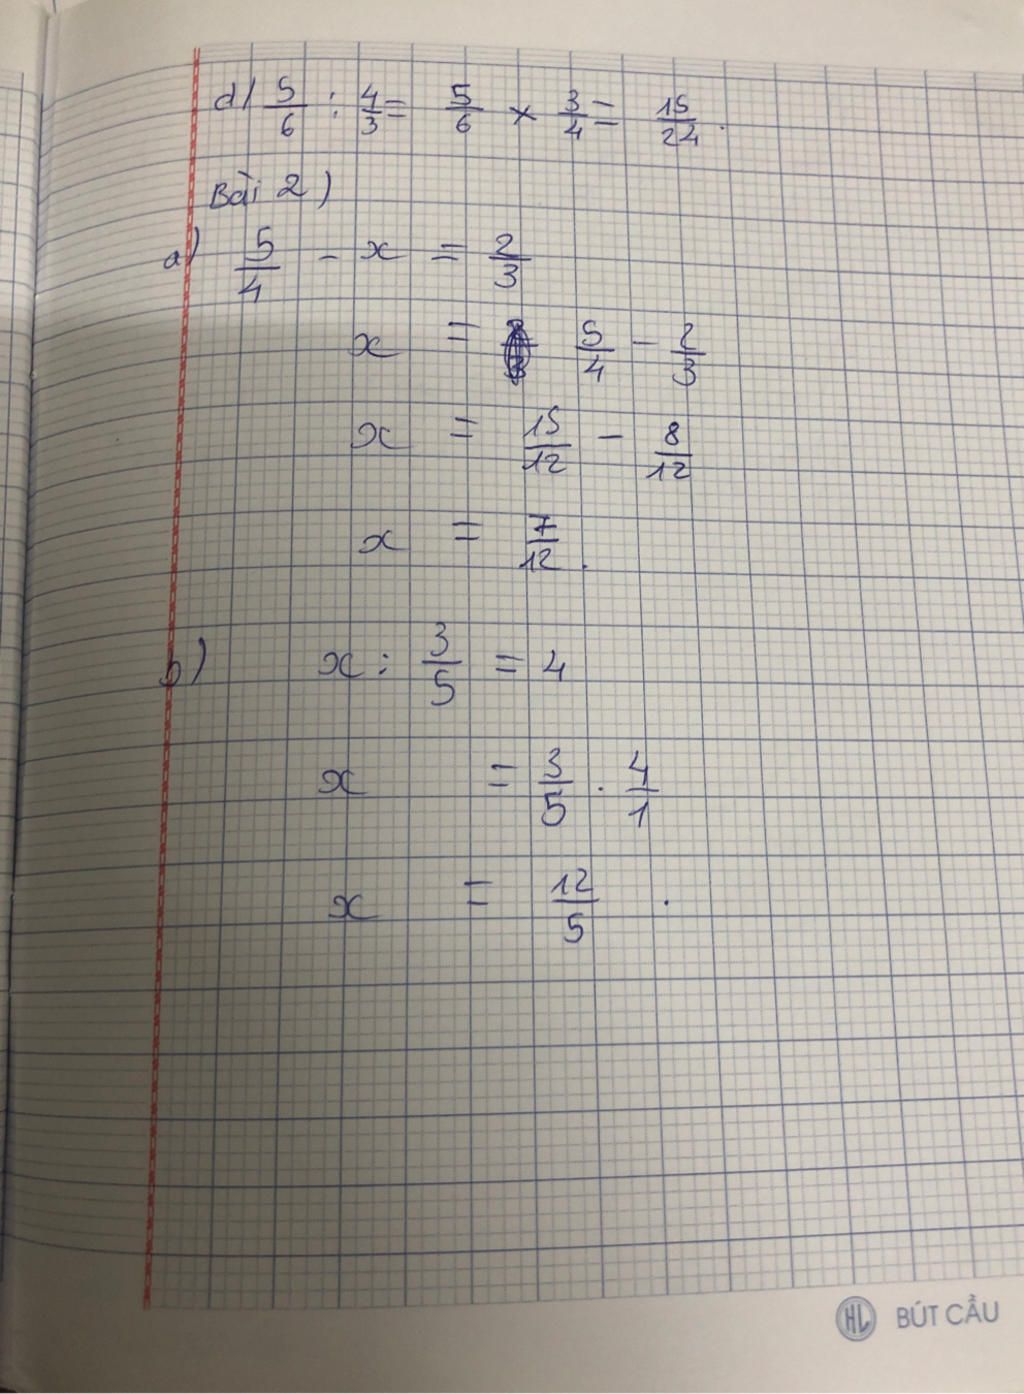 d) 5/6 : 4/3 = 5/6 × 3/4 = 15/24.
Bài 2)
a) 5/4 - x = 2/3
x = 5/4 - 2/3
x = 15/12 - 8/12
x = 7/12.
b) x : 3/5 = 4
x = 3/5 . 4/1
x = 12/5 .
HL BÚT CẦU